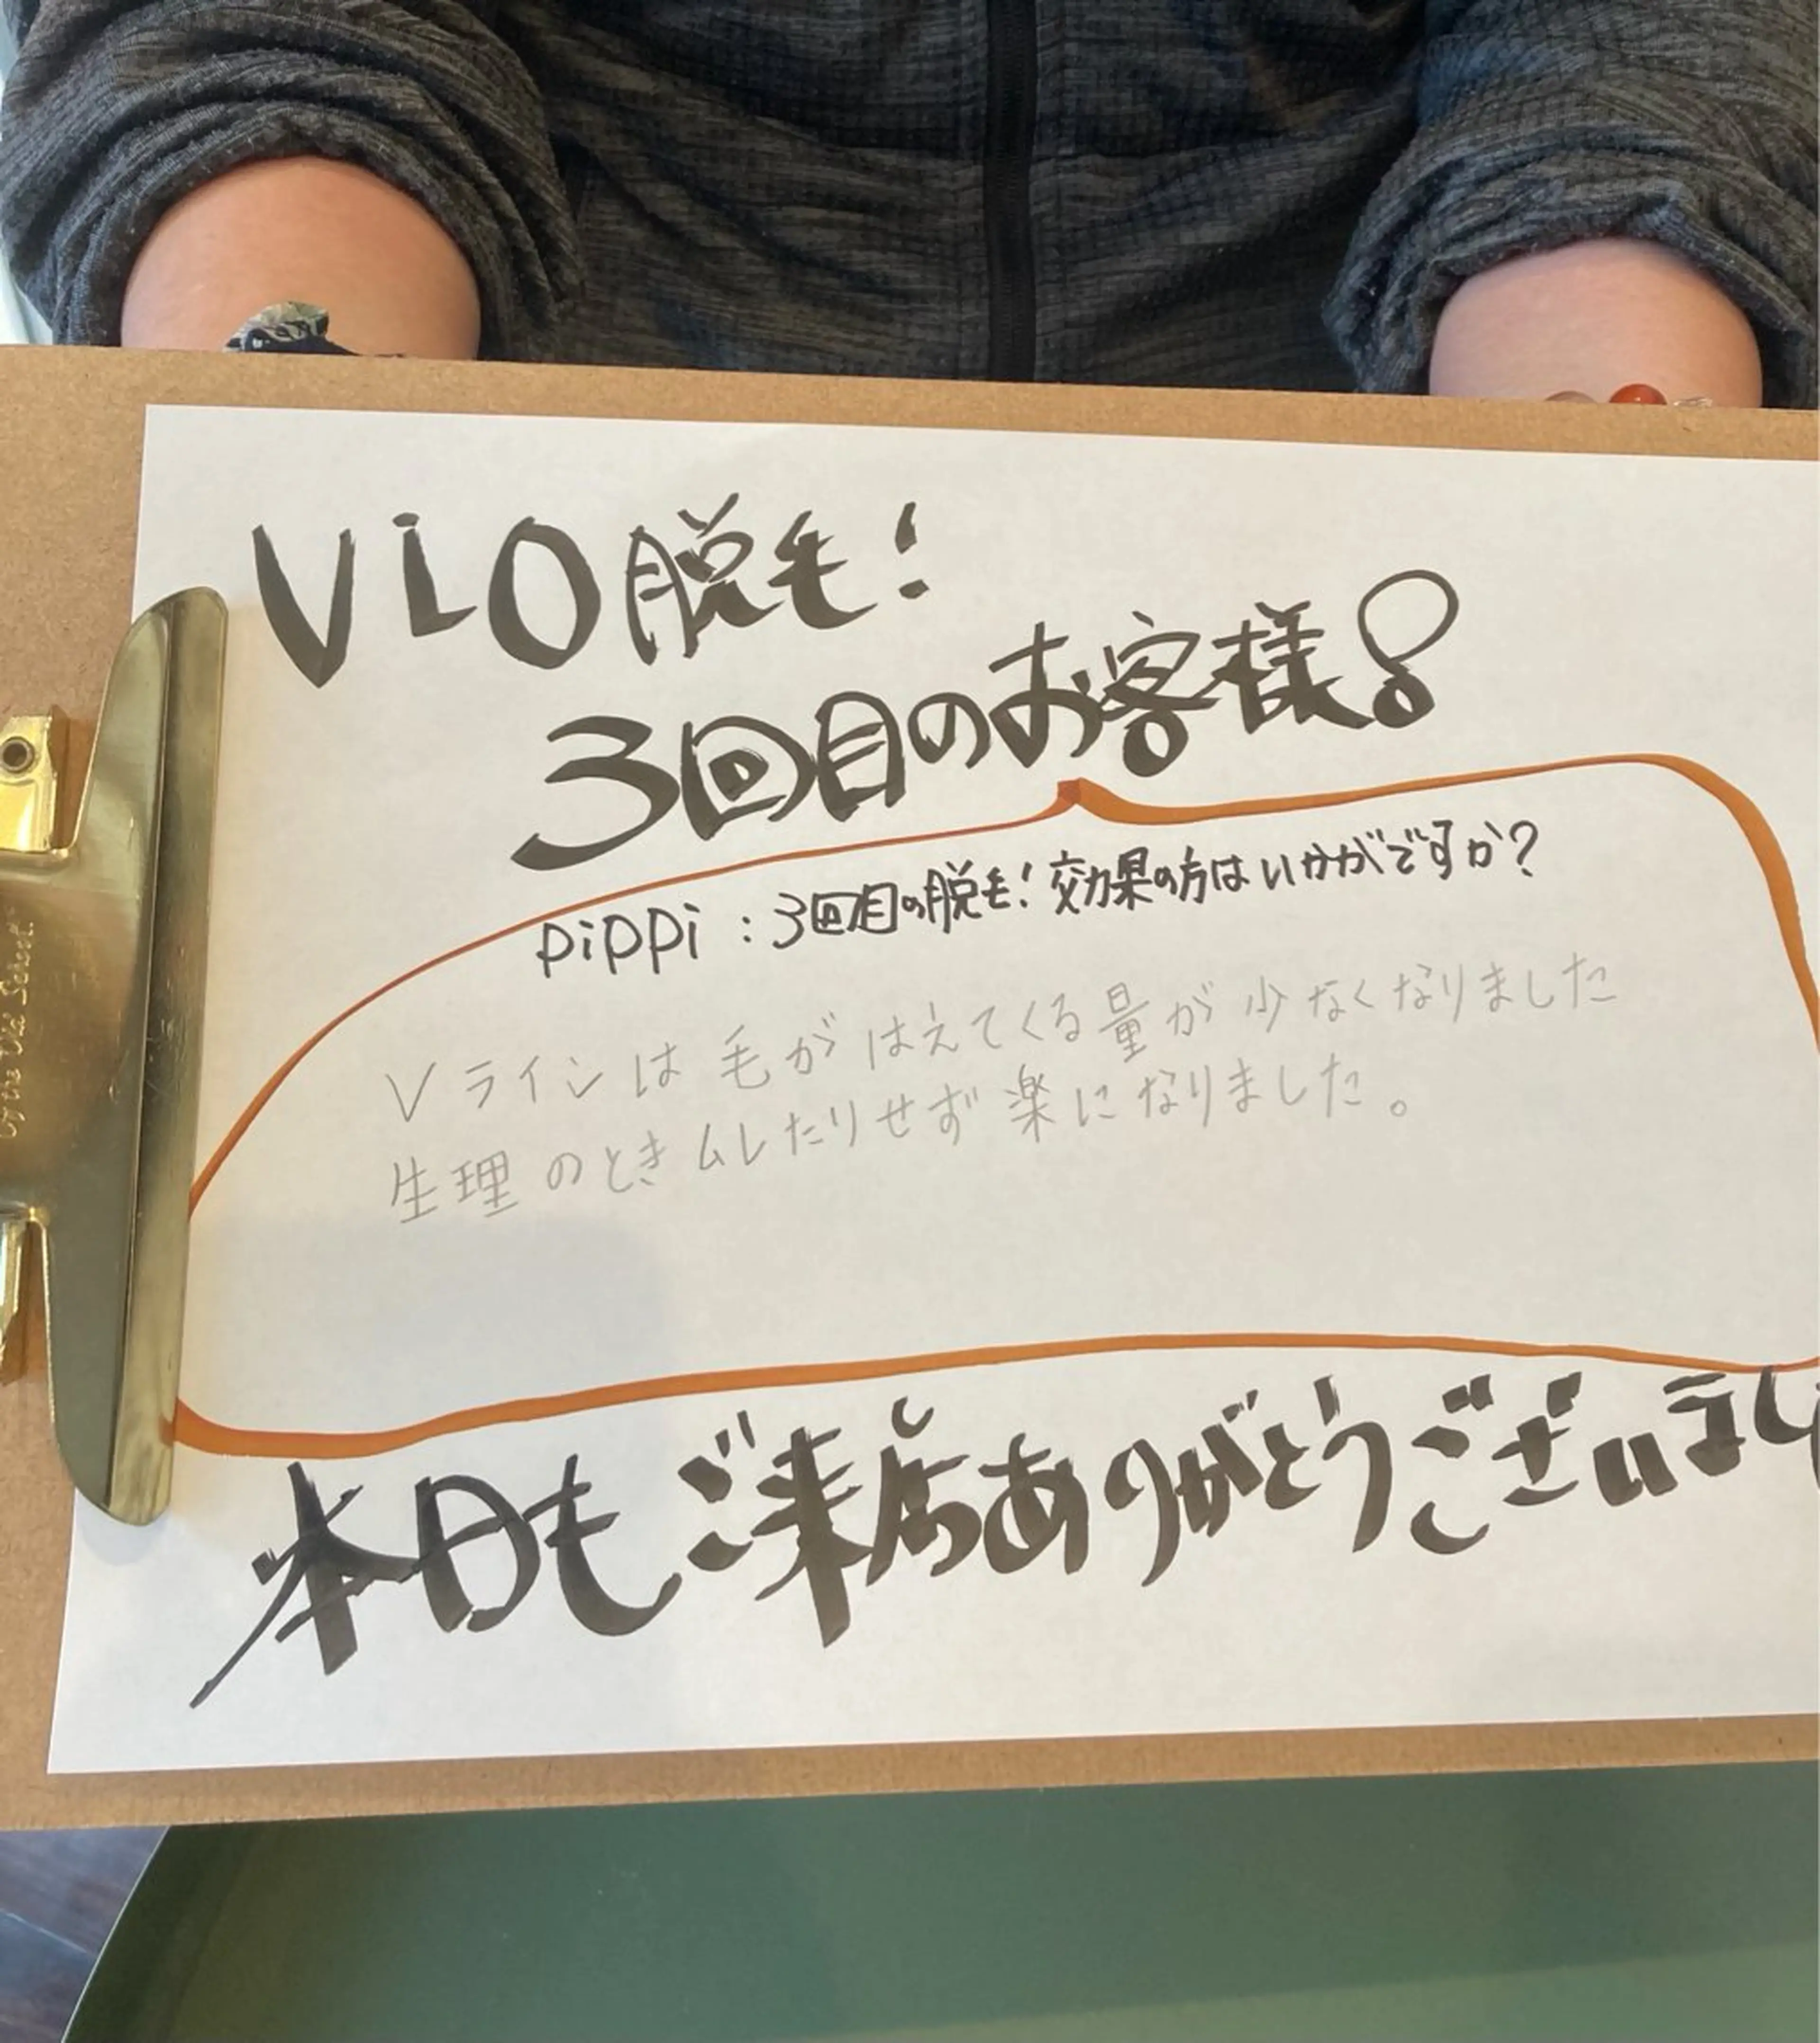 ViO脱毛!
3回目のお客様!
pippi:3回目の脱毛!効果の方はいかがですか?
Vラインは毛がはえてくる量が少なくなりました
生理のときムレたりせず楽になりました。
本日もご来店ありがとうございまし
by the Old School